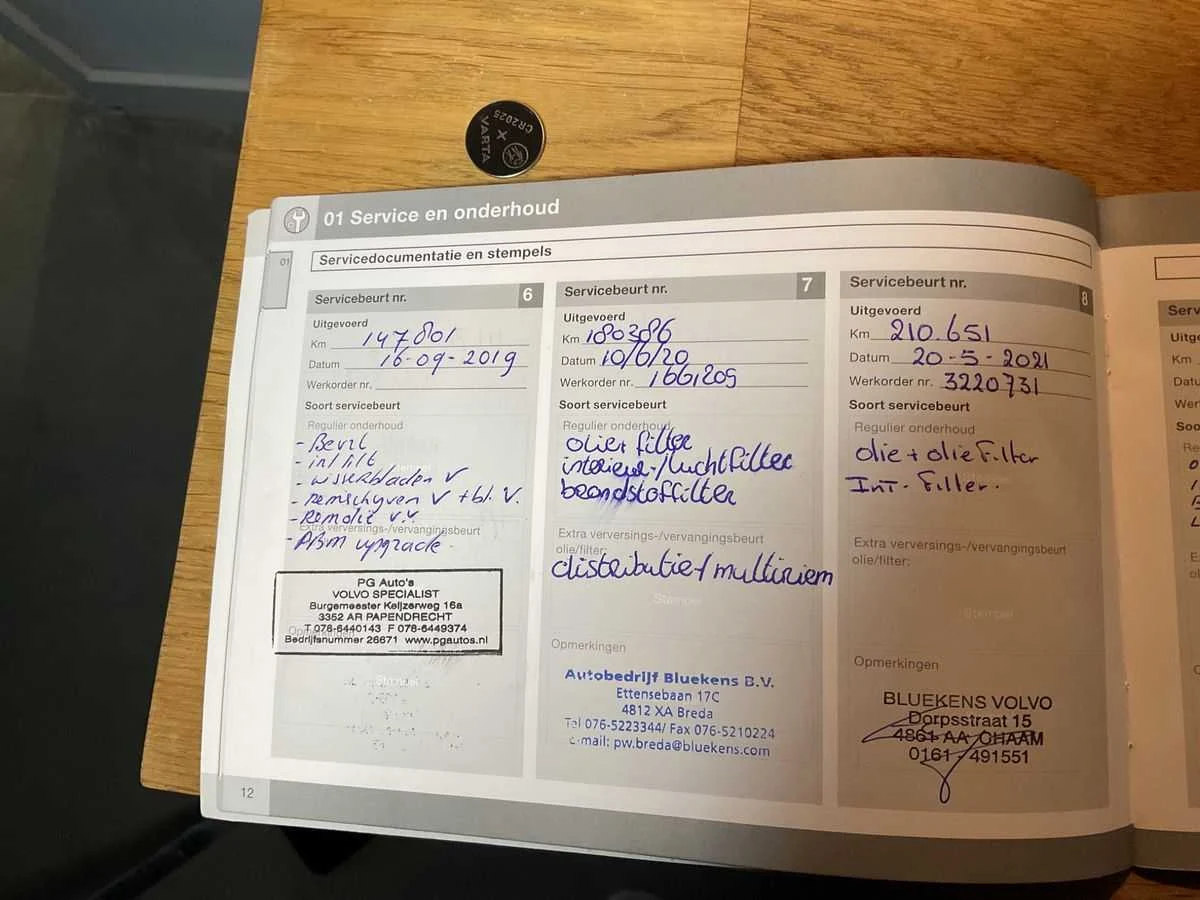 CR2025
VARTA
01 Service en onderhoud
01
Servicedocumentatie en stempels
Servicebeurt nr. 6
Uitgevoerd
Km 147801
Datum 16-09-2019
Werkorder nr.
Soort servicebeurt
Regulier onderhoud
- Beurt
- int filt
- wisserbladen V
- remschyven V + bl. V.
- Remolie v.v.
Extra verversings-/vervangingsbeurt
upgrade.
PG Auto's
VOLVO SPECIALIST
Burgemeester Keijzerweg 16a
3352 AR PAPENDRECHT
T 078-6440143 F 078-6449374
Bedrijfsnummer 26671 www.pgautos.nl
Opmerkingen
Stempel
Servicebeurt nr. 7
Uitgevoerd
Km 180386
Datum 10/6/20
Werkorder nr. 1661209
Soort servicebeurt
Regulier onderhoud
olie+ filter
interieur-/luchtfilter
brandstoffilter
Extra verversings-/vervangingsbeurt
olie/filter:
distributie+/multiriem
Stempel
Opmerkingen
Autobedrijf Bluekens B.V.
Ettensebaan 17C
4812 XA Breda
Tel 076-5223344/ Fax 076-5210224
e-mail: pw.breda@bluekens.com
Servicebeurt nr. 8
Uitgevoerd
Km 210.651
Datum 20-5-2021
Werkorder nr. 3220731
Soort servicebeurt
Regulier onderhoud
olie + olie Filter
Int. Filter.
Extra verversings-/vervangingsbeurt
olie/filter:
Stempel
Opmerkingen
BLUEKENS VOLVO
Dorpsstraat 15
4861 AA CHAAM
0161 - 491551
12
Serv
Uitge
Km
Datu
Wer
Soo